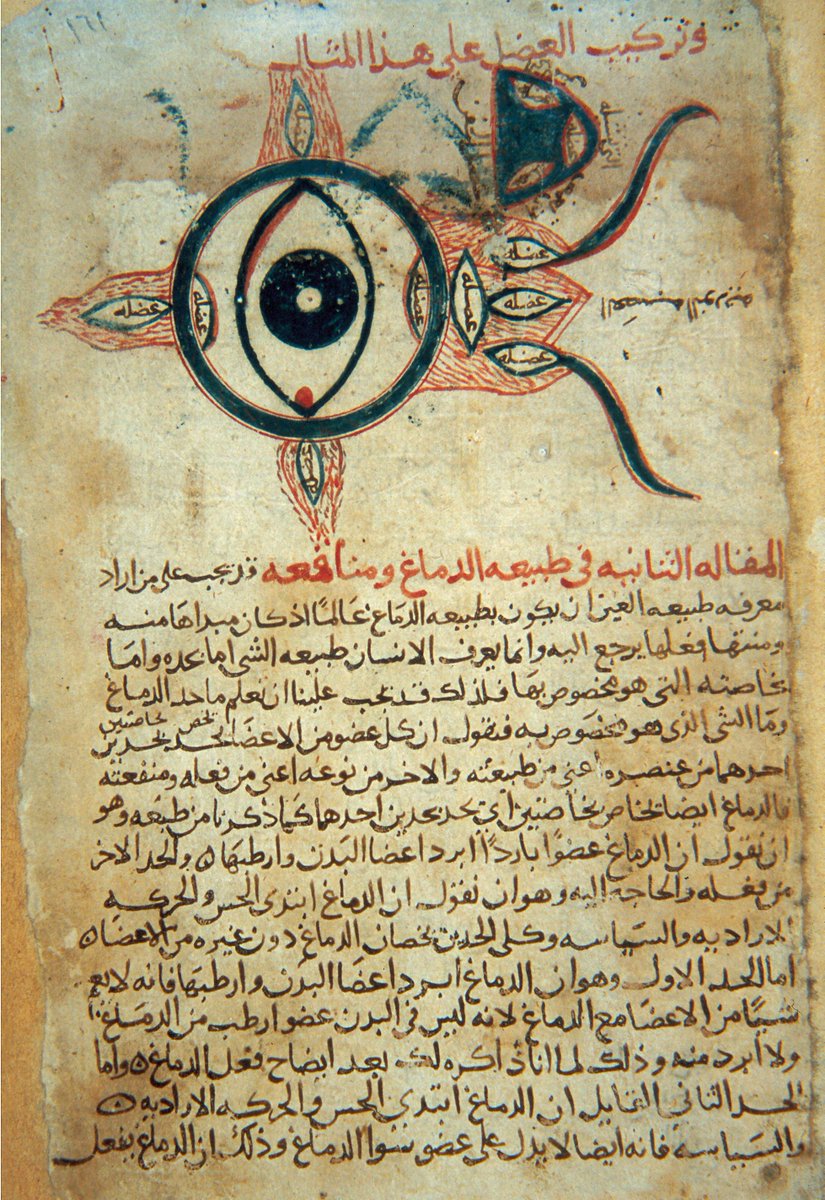 ١٦١
وتركيب العضل على هذا المثال
عضله
عضله
عضله
عضله
عضله
عضله
عضله
عضله
عضله
المقاله الثانيه فى طبيعه الدماغ ومنافعه قد يجب على من اراد
معرفه طبيعه العين ان يكون بطبيعه الدماغ عالمًا اذ كان مبداها منه
ومنتها فعلها يرجع اليه وانما يعرف الانسان طبيعه الشى اما بحده واما
بخاصته التى هو مخصوص بها فلذلك قد يجب علينا ان نعلم ما حد الدماغ
وما الشى الذى هو مخصوص به فنقول ان كل عضو من الاعضا يحد بحدين
احدهما من عنصره اعنى من طبيعته والاخر من نوعه اعنى من فعله ومنفعته
فالدماغ ايضا خاص بخاصتين اي يحد بحدين احدهما كما ذكرنا من طبعه وهو
ان نقول ان الدماغ عضوًا باردًا ابرد اعضا البدن وارطبها ه والحد الاخر
من فعله والحاجه اليه وهو ان نقول ان الدماغ ابتدى الحس والحركه
الاراديه والسياسه وكلى الحدين يخصان الدماغ دون غيره من الاعضا ه
اما الحد الاول وهو ان الدماغ ابرد اعضا البدن وارطبها فانه لا يعم
شيًا من الاعضا مع الدماغ لانه ليس فى البدن عضو ارطب من الدماغ
ولا ابرد منه وذلك لما انا ذاكره لك بعد ايضاح فعل الدماغ ه واما
الحد الثانى القايل ان الدماغ ابتدى الحس والحركه الاراديه ه
والسياسه فانه ايضا لا يدل على عضو سوا الدماغ وذلك ان الدماغ يفعل